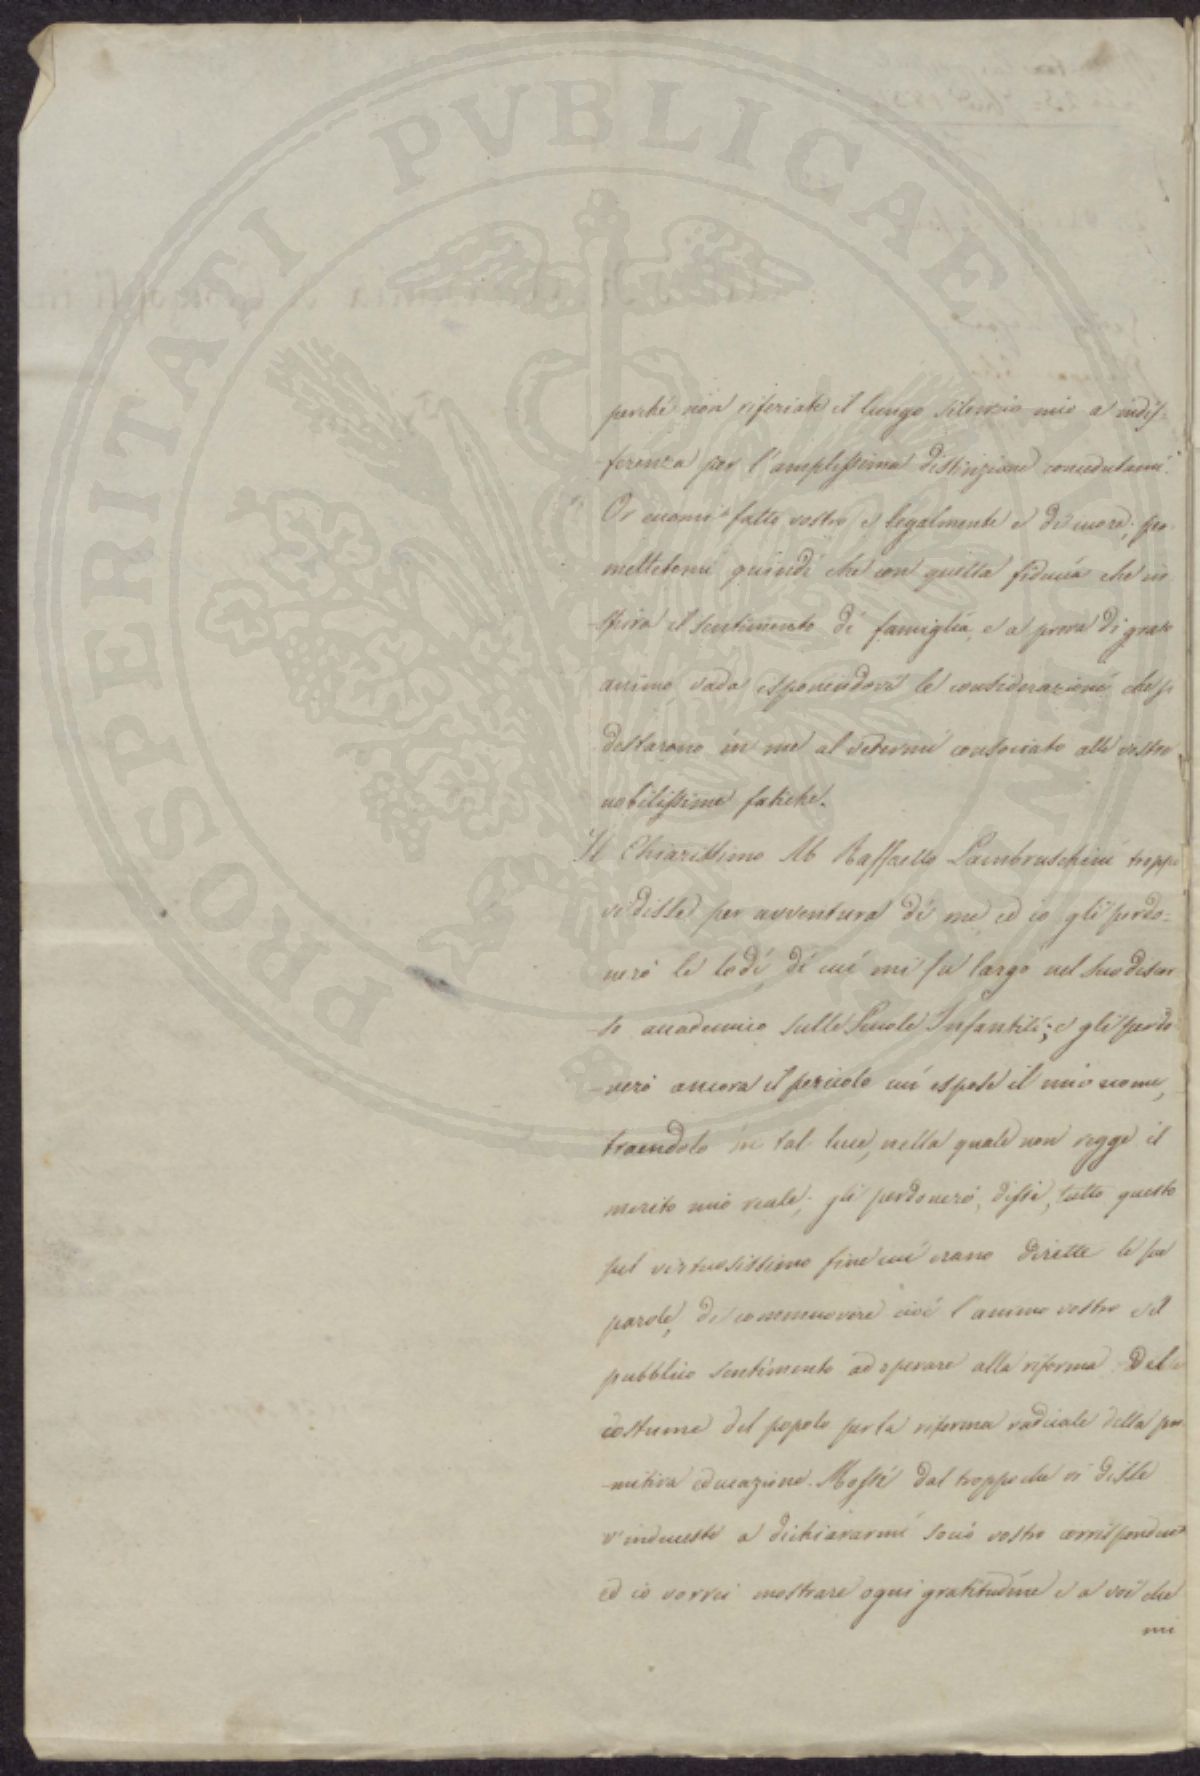 PROSPERITATI PVBLICAE
perché non riferiate il lungo silenzio mio a indif-
ferenza per l'amplissima distinzione concedutami.
Or eccomi fatto vostro e legalmente e di cuore; per-
mettetemi quindi che con quella fiducia che in-
spira il sentimento di famiglia, e a prova di grato
animo vada esponendovi le considerazioni che si
destarono in me al vedermi consociato alle vostre
nobilissime fatiche.
Il Chiarissimo Ab Raffaello Lambruschini troppo
vi disse per avventura di me, ed io gli perdo=
nerò le lodi, di cui mi fu largo nel suo discor
-so accademico sulle Scuole Infantili; e gli perdo
-nerò ancora il pericolo cui espose il mio nome,
traendolo in tal luce, nella quale non regge il
merito mio reale; gli perdonerò, dissi, tutto questo
pel virtuosissimo fine cui erano dirette le sue
parole, di commuovere cioè l'animo vostro ed il
pubblico sentimento ad operare alla riforma del
costume del popolo per la riforma radicale della pri
-mitiva educazione. Mossi dal troppo che vi disse
v'induceste a dichiararmi socio vostro corrispondente
ed io vorrei mostrare ogni gratitudine e a voi che
mi